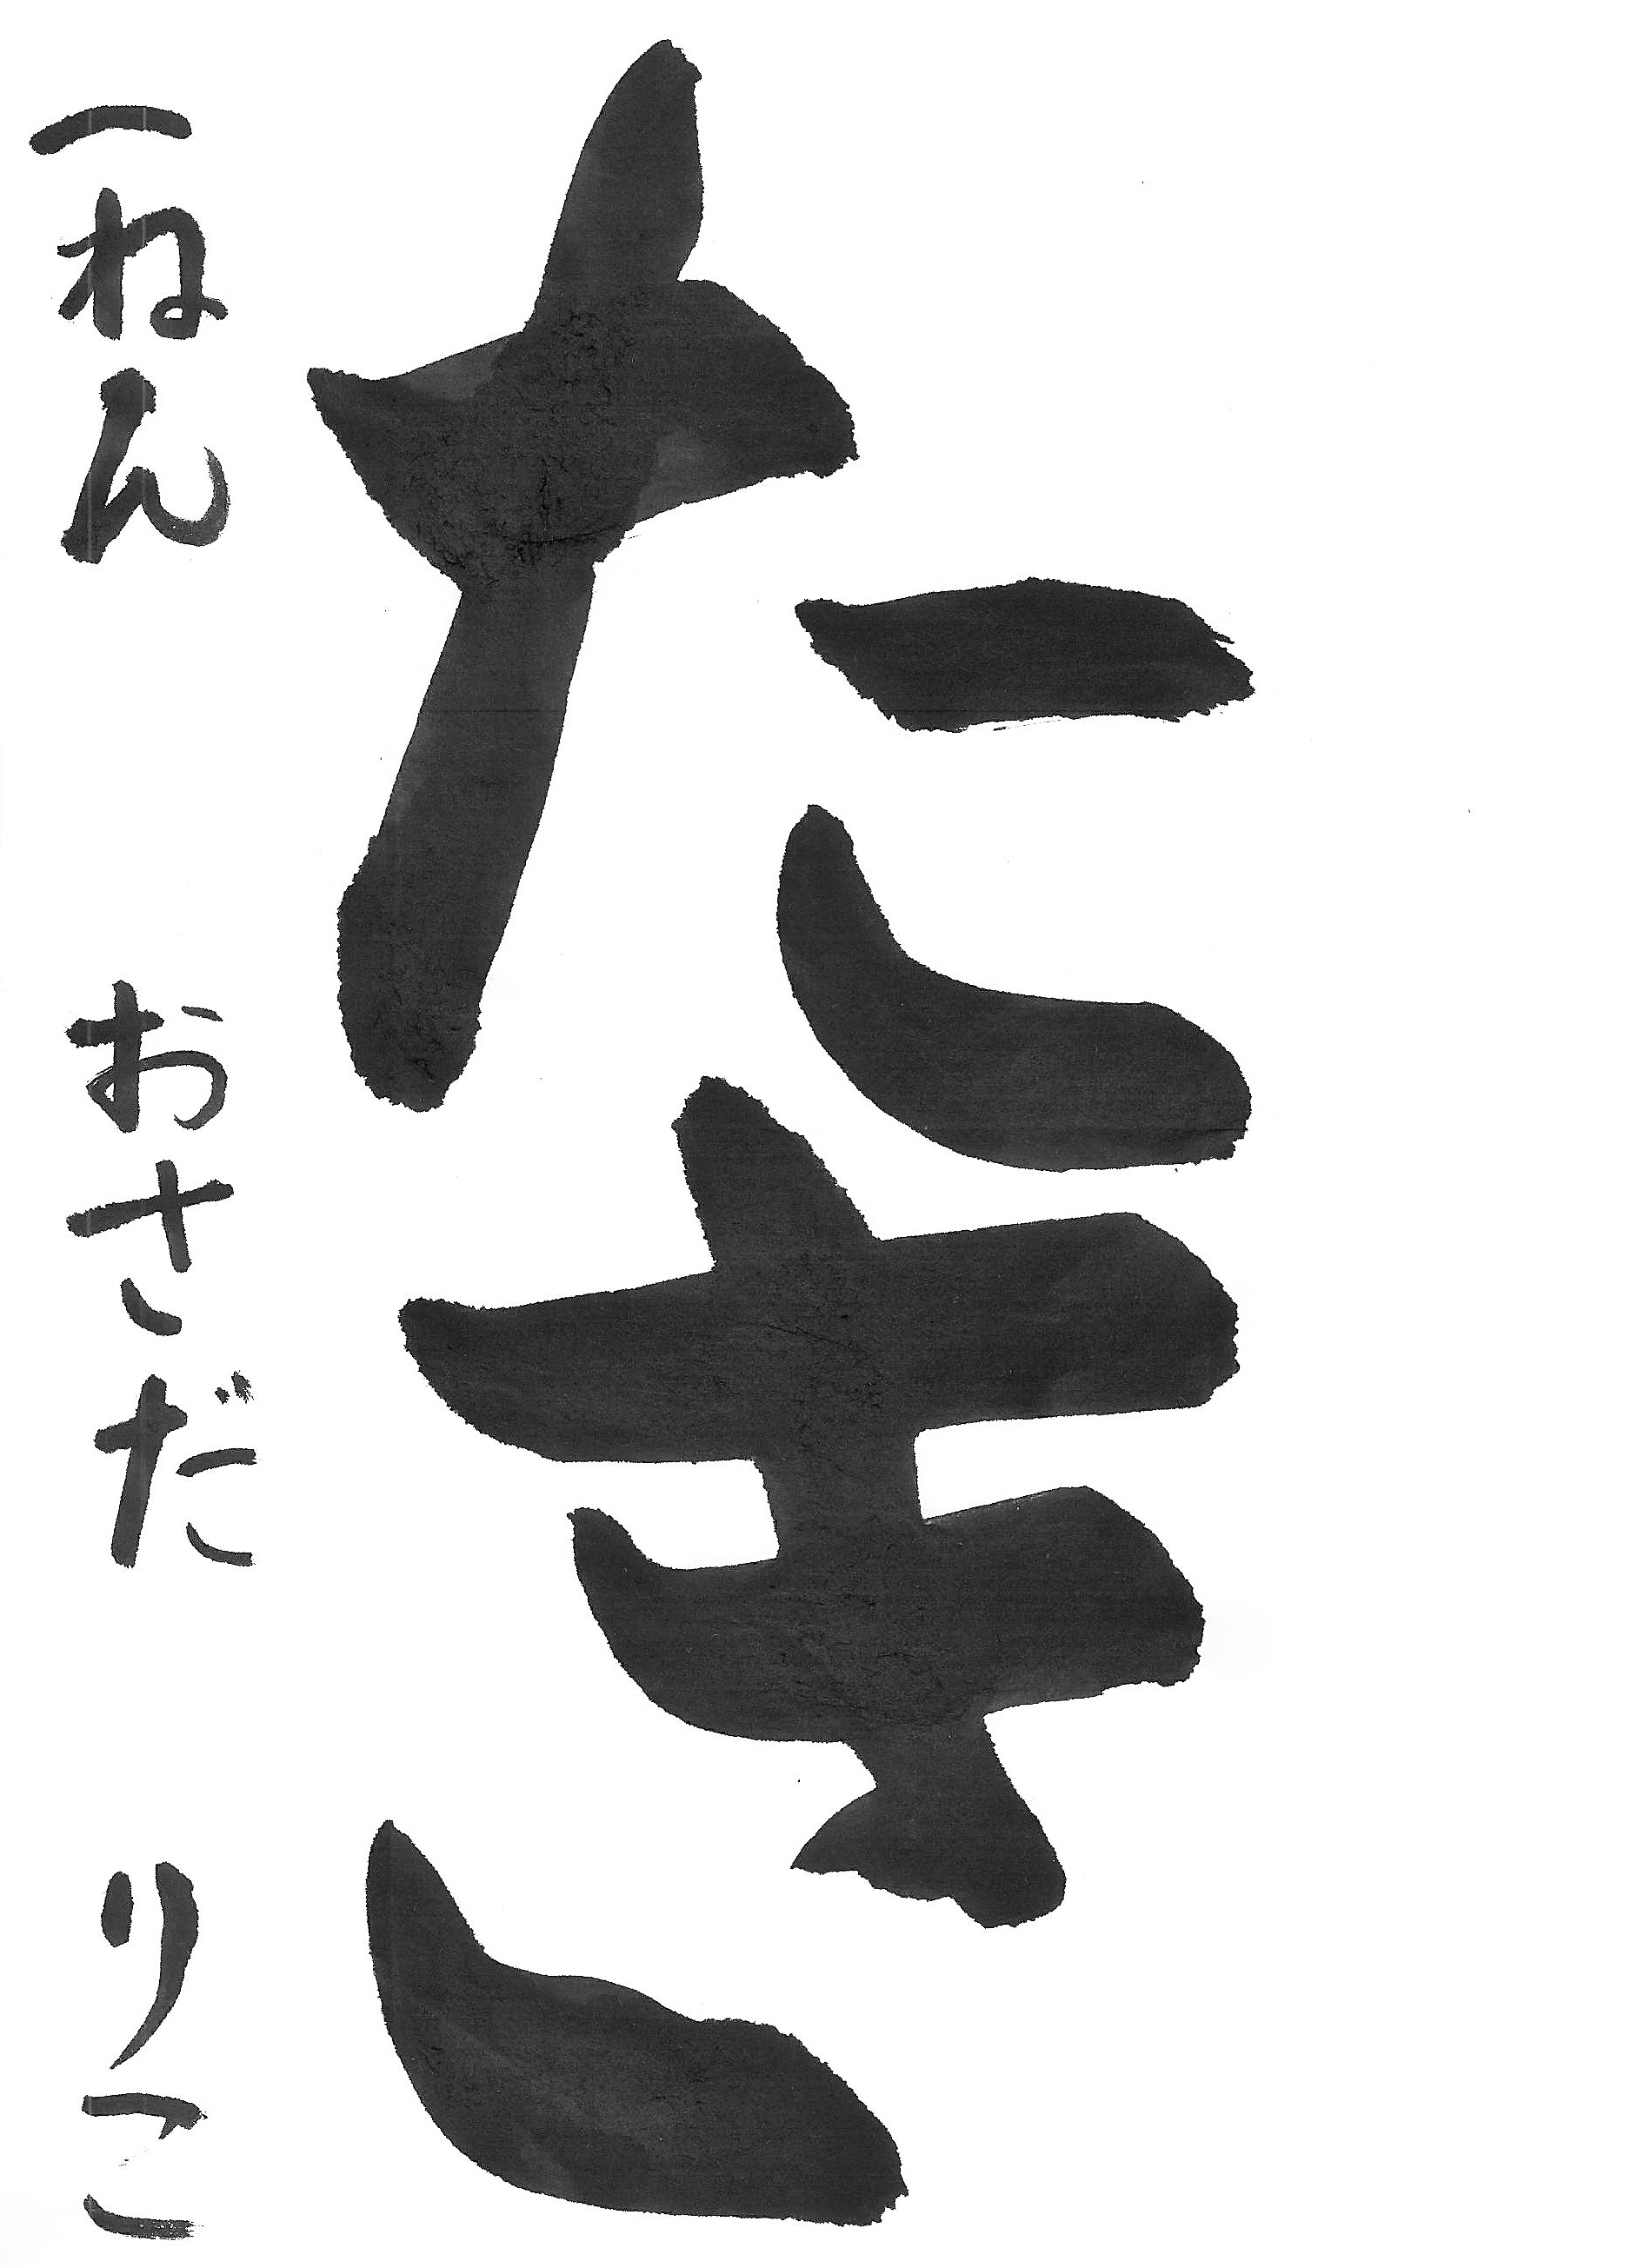 たき
一ねん おさだ りこ